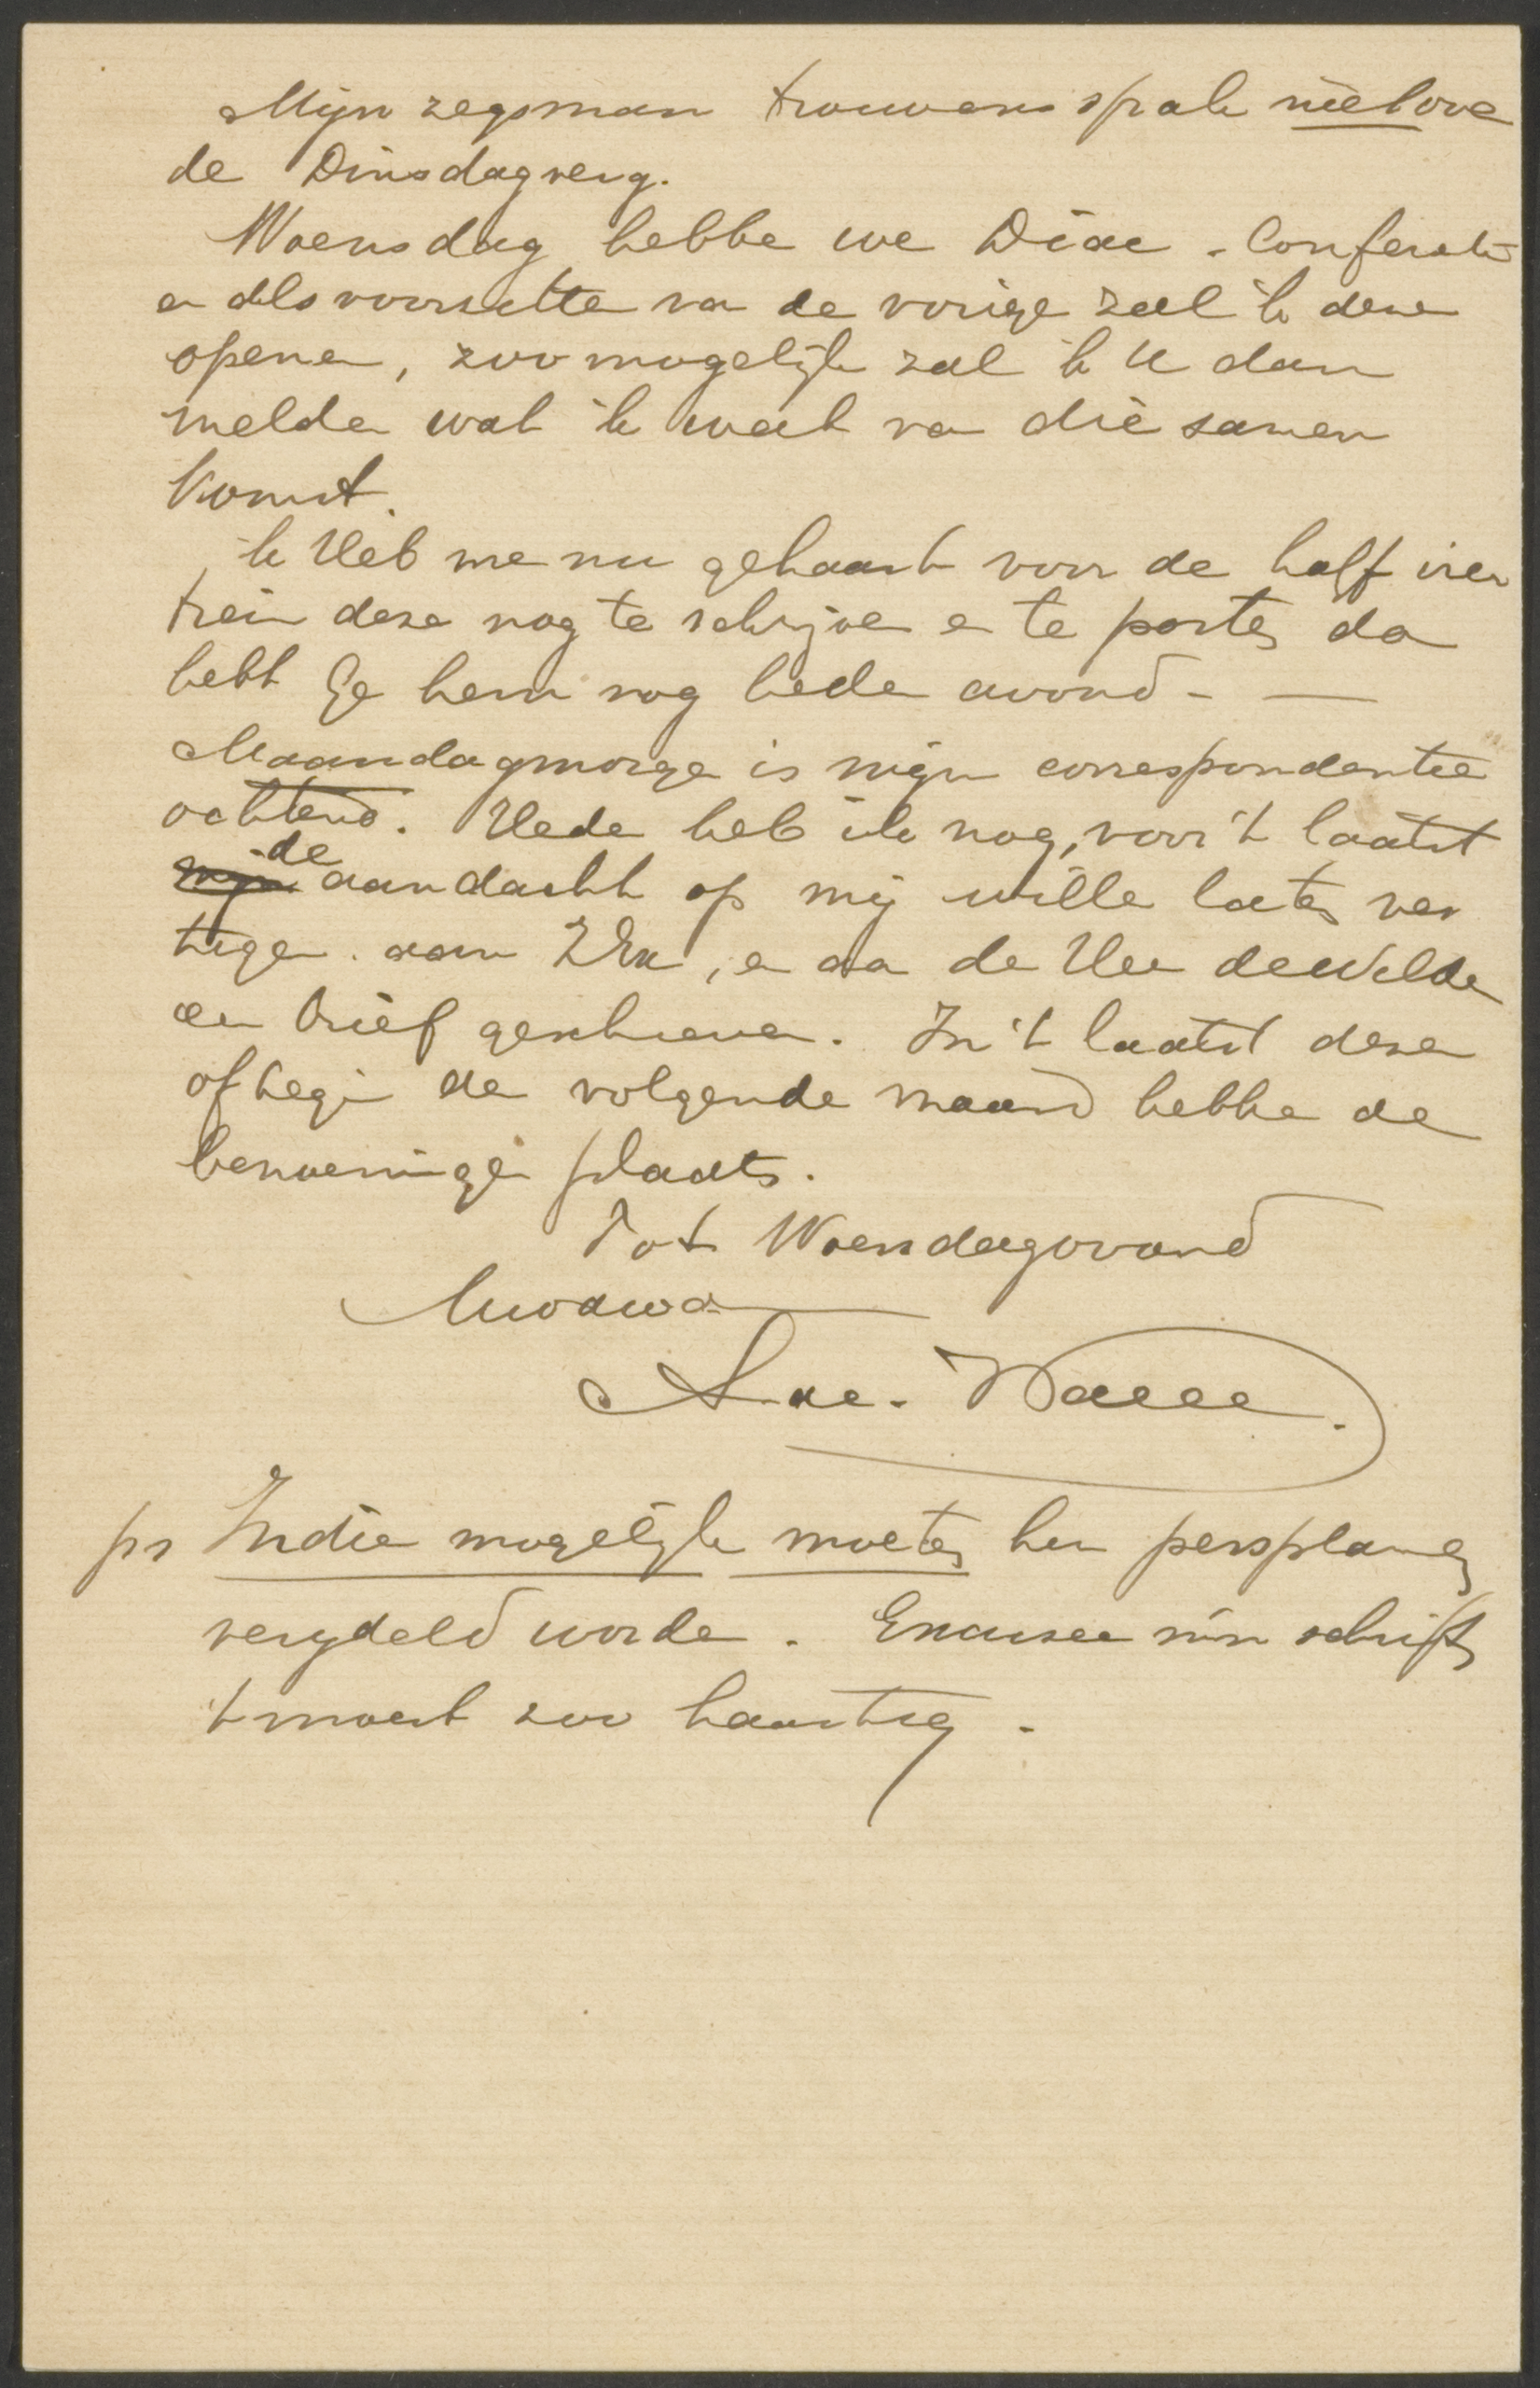 Mijn zegsman trouwens sprak niet ove
de Dinsdagverg.
Woensdag hebbe we Diac. Conferentie
en als voorzitte va de vorige zal ik deze
opene, zoo mogelijk zal ik U dan
melde wat ik weet va die samen
komst.
Ik Heb me nu gehaast voor de half vier
trein deze nog te schrijve e te poste, da
hebt Ge hem nog hede avond - —
Maandagmorge is mijn correspondentie
ochtend. Hede heb ik nog, voor 't laatst
de aandacht op mij wille late ves
tige. aan , e aa de Hee de Wilde
ee brief geschreve. In 't laatst deze
of begi de volgende maand hebbe de
benoeminge plaats.
Tot Woensdagavond
ps Indie mogelijk moete hu persplanne
verijdeld worde. Excusee mn schrift
't moest zoo haastig.